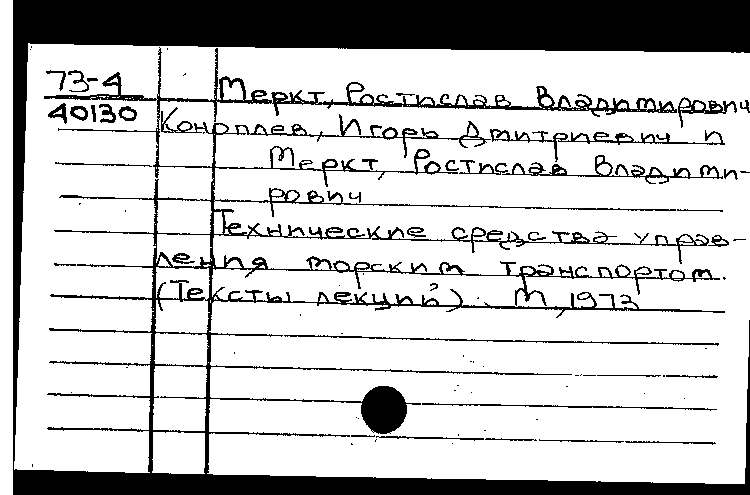 73-4
40130
Меркт, Ростислав Владимирович
Коноплев, Игорь Дмитриевич и
Меркт, Ростислав Влади­ми-
рович
Технические средства управ-
ления морским транспортом.
(Тексты лекций). М, 1973